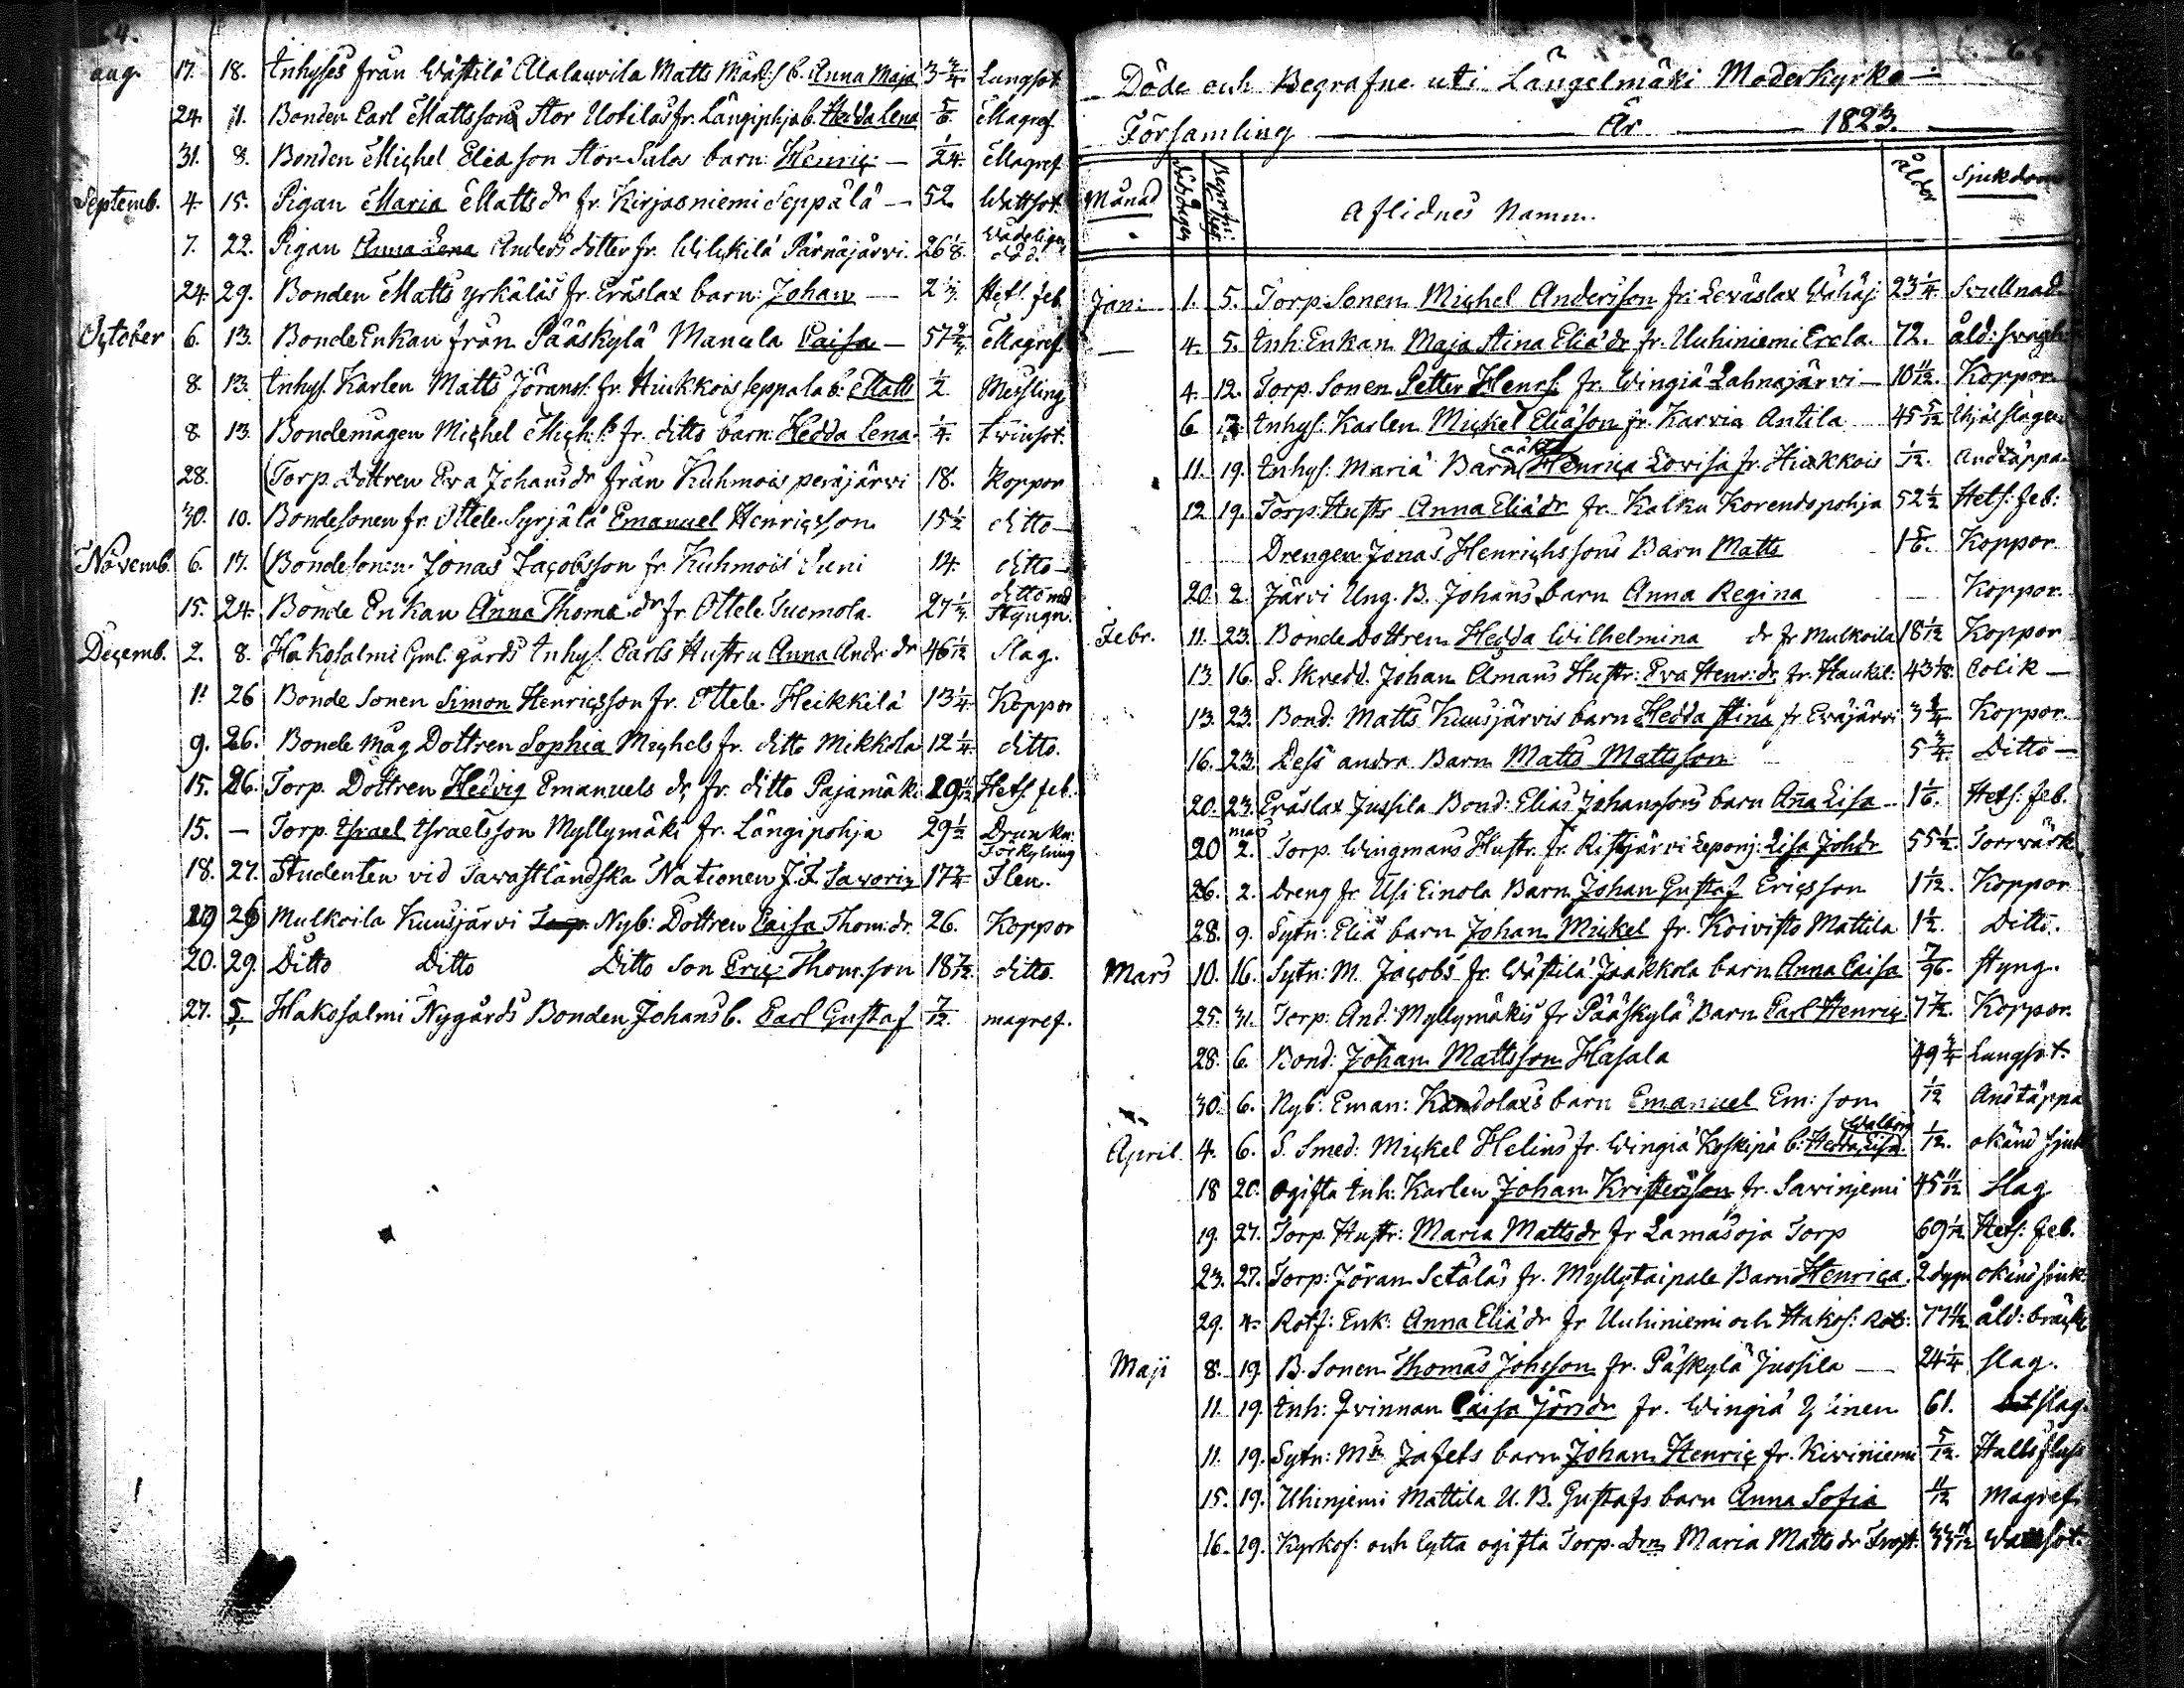 64.
aug. 17. 18. Inhyses från Wästilä Alalauvila Matts Matts: b. Anna Maja 3 3/4 Lungsot
24. 11. Bonden Carl Mattssons Stor Uotilas fr. Längipohja b. Hedda Lena 5/6 Magref.
31. 8. Bonden Michel Eliæson Stor-Sulos barn: Henric — 1/24. Magref
Septemb. 4. 15. Pigan Maria Matts dr fr. Kirjasniemi Seppälä — 52. Wattsot.
7. 22. Pigan Anna Lena Anders dotter fr. Wilckilä Pärnäjärvi. 26 1/8. Wådeligen död.
24. 29. Bonden Matts Yrkäläs fr. Eräslax barn: Johan — 2 1/3. Hets. feb.
October 6. 13. BondeEnkan från Pääskylä Manula Caisa — 57 Magref
8. 13. Inhys. Karlen Matts Jöranss. fr. Hiukkois Seppala b: Matts 1/2. Messling
8. 13. Bondemågen Michel Mich: s: fr. ditto barn: Hedda Lena. 1/4. Twinsot.
28. (Torp. Dottren Eva Johans dr från Kuhmois peräjärvi 18. Koppor
30. 10. Bondesonen fr. Ottele Syrjälä Emanuel Henricsson. 15 1/2 ditto —
Novemb. 6. 17. (Bondesonen Jonas Jacobsson fr. Kuhmois Suni 14. ditto —
15. 24. Bonde Enkan Anna Thomæ dr fr. Ottele Tuomola. 27 1/3. ditto med Styngn.
Decemb. 2. 8. Hakosalmi Gml. gårds Inhys. Carls Hustru Anna Andr. dr 46 1/12 Slag.
1. 26 Bonde Sonen Simon Henricsson fr. Ottele Heikkilä 13 1/4. Koppor
9. 26. Bonde Måg Dottren Sophia Michels fr. ditto Mikkola 12 1/4. ditto.
15. 26. Torp. Dottren Hedvig Emanuels dr fr. ditto Pajamäki 29 1/12 Hets. feb.
15. — Torp. Israel Israelsson Myllymäki fr. Längipohja 29 1/2 Drunkn: Förkylning
18. 27. Studenten vid Tawastländska Nationen J. F. Savorin 17 3/4. Flen.
19 26 Mulkoila Kuusjärvi Nyb: Dottren Caisa Thom: dr. 26. Koppor
20. 29. Ditto Ditto Ditto Son Eric Thom. son 18 7/12. ditto.
27. 5. Hakosalmi Nygårds Bonden Johans b. Carl Gustaf 7/12. magref.
65
Döde och Begrafne uti Längelmäki Moderkyrko-
Församling — År — 1823.
Månad Dödsdagen Begrafn: dagen Aflidnes Namn. Ålder Sjukdom
Jan: 1. 5. Torp: Sonen Michel Andersson fr: Leväslax Wähäj. 23 1/4. Svullnad.
— 4. 5. Inh: Enkan Maja Stina Eliæ dr fr. Uuhiniemi Erola. 72. åld: svagh
4. 12. Torp. Sonen Petter Henrs: fr. Wingiä Lahnajärvi — 10 11/12. Koppor
6 12. Inhys: Karlen Mickel Eliæson fr. Karvia Antila 45 5/12 Ihjälslagen
11. 19. Inhys: Mariæ Barn oäkta Henrica Lovisa fr. Hiukkois 1/12. Andtäppa.
12 19. Torp: Hustr. Anna Eliæ dr fr. Kalku Korendopohja 52 1/2 Hets: feb:
Drengen Jonas Henrichssons Barn Matts 1 5/6. Koppor.
20. 2. Järvi Ung. B. Johans barn Anna Regina — Koppor.
Febr. 11. 23. Bonde Dottren Hedda Wilhelmina dr fr Mulkoila 18 1/12 Koppor
13. 16. S. Skredd. Johan Almans Hustr: Eva Henr: dr fr. Haukil: 43 1/8. Colik —
13. 23. Bond: Matts Kuusjärvis barn Hedda Stina fr. Eväjärvi 3 3/4 Koppor.
16. 23. Dess andra Barn Matts Mattsson 5 3/4. Ditto —
20. 23. Eräslax Jussila Bond: Elias Johanssons barn Ana Lisa — 1 1/6. Hets: feb.
20 mars 2. Torp. Wingmans Hustr. fr. Ristjärvi Leponj: Lisa Johdr 55 1/2. Torrvärk
26. 2. Dreng fr. Usi Einola Barn Johan Gustaf Ericsson 1 1/12. Koppor
28. 9. Sytn: Eliæ barn Johan Mickel fr. Koivisto Mattila 1 1/2. Ditto.
Mars 10. 16. Sytn: M. Jacobs fr. Wästilä Jaakkola barn Anna Caisa 7/96. Styng.
25. 31. Torp: And: Myllymäkis fr Pääskylä Barn Carl Henric 7 7/12. Koppor.
28. 6. Bond: Johan Mattsson Hasala 49 3/4 Lungsot.
30. 6. Nyb: Eman: Kandolaxs barn Emanuel Em: son 1/12 Andtäppa
April. 4. 6. S. Smed: Mickel Helins fr. Wingiä Koskipä b: Hedda Lisa Walborg 1/12. okänd sjuk
18 20. Ogifta Inh: Karlen Johan Kristersson fr. Savinjemi 45 11/12 Slag
19. 27. Torp. Hustr: Maria Mattsdr fr Lamasoja Torp 69 1/12 Hets: feb.
23. 27. Torp: Jöran Setäläs fr. Myllytaipale Barn Henrica 2 dygn okänd sjuk:
29. 4. Rotf: Enk: Anna Eliæ dr fr Uuhiniemi och Hakos: Rot: 77 11/12 åld: bräckl
Maji 8. 19. B. Sonen Thomas Johsson fr. Päskylä Jussila — 24 1/4 slag.
11. 19. Inh: Qvinnan Caisa Jörsdr fr. Wingiä Yinen 61. slag.
11. 19. Sytn: Ms Jafets barn Johan Henric fr. Kiviniemi 5/12. Halts fluss
15. 19. Uhinjemi Mattila U. B. Gustafs barn Anna Sofia 11/12 Magref.
16. 29. Kyrkos: och lytta ogifta Torp. Drn Maria Matts dr 33 11/12 Wattsot.